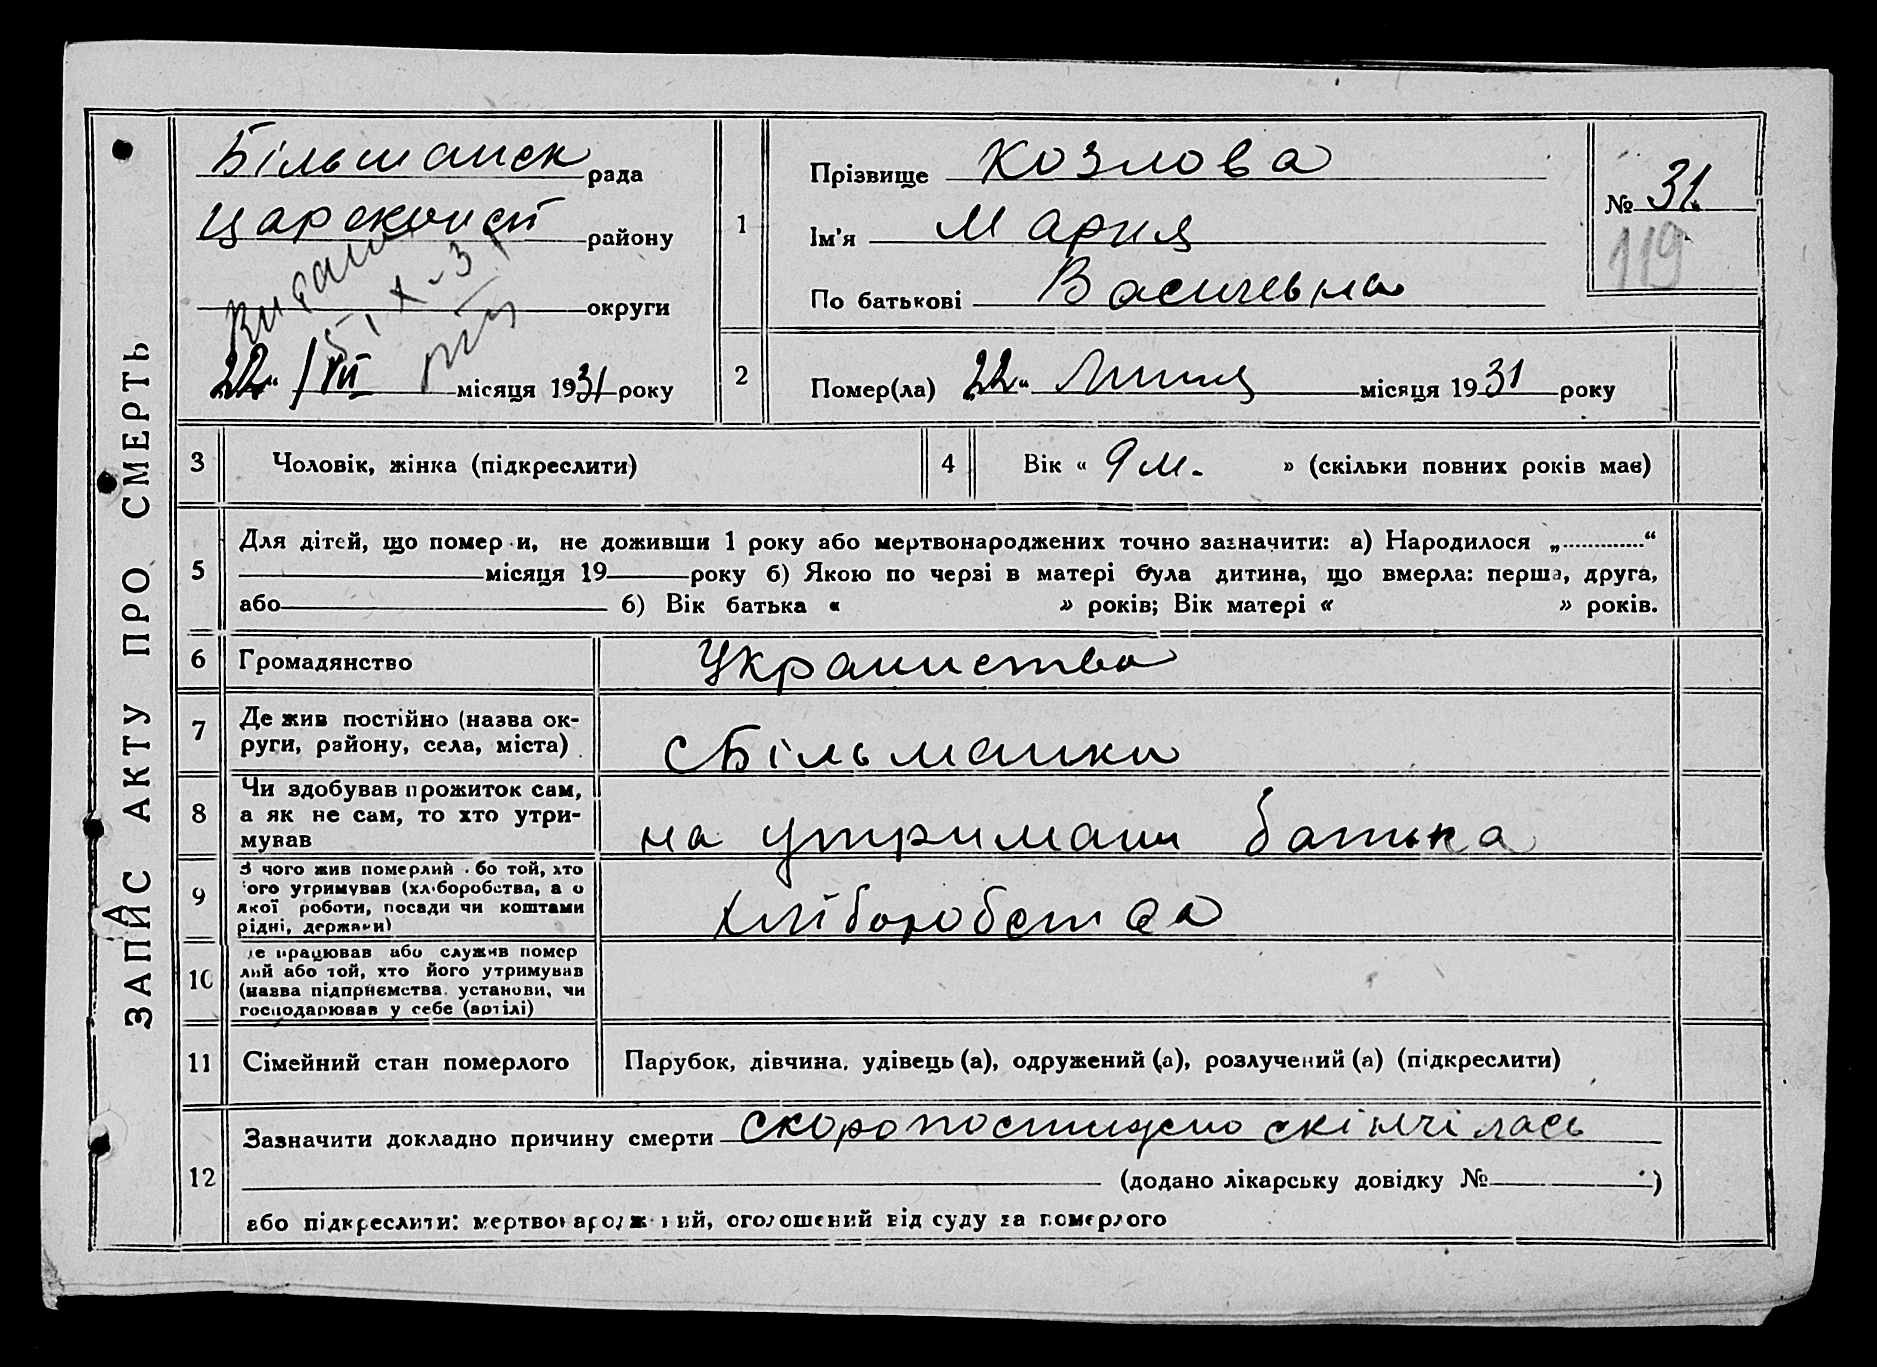 ЗАПИС АКТУ ПРО СМЕРТЬ
Більманск рада
Царекон­ст району
округи
22 / VII місяця 1931 року
1
Прізвище Козлова
Ім'я Мария
По батькові Василевна
№ 31.
119
2
Помер(ла) 22 липця місяця 1931 року
3 Чоловік, жінка (підкреслити)
4 Вік « 9 м. » (скільки повних років мав)
5
Для дітей, що помер и, не доживши 1 року або мертвонароджених точно зазначити: а) Народилося „.............“
місяця 19 року б) Якою по черзі в матері була дитина, що вмерла: перша, друга,
або б) Вік батька « » років; Вік матері « » років.
6 Громадянство Украинство
7 Де жив постійно (назва ок-
руги, району, села, міста) с Більманки
8 Чи здобував прожиток сам,
а як не сам, то хто утри-
мував на утримани батька
9 З чого жив померлий бо той, хто
ого утримував (хліборобства, а о
якої роботи, посади чи коштами
рідні, держави) хліборобства
10 е працював або служив помер
лий або той, хто його утримував
(назва підприємства. установи, чи
господарював у себе (артілі)
11 Сімейний стан померлого Парубок, дівчина, удівець (а), одружений (а), розлучений (а) (підкреслити)
12
Зазначити докладно причину смерти скоропостижно скінчілась
(додано лікарську довідку № )
або підкреслити: мертвонароджений, оголошений від суду за померлого